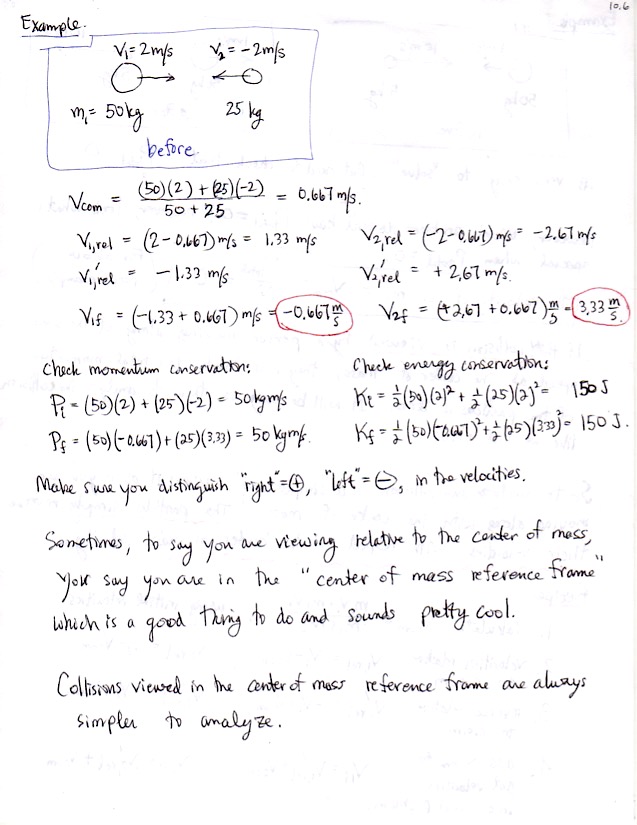 10.6
Example.
V₁ = 2 m/s V₂ = -2 m/s
m₁ = 50 kg 25 kg
before
V_com = (50)(2) + (25)(-2) / 50 + 25 = 0.667 m/s.
V₁,rel = (2 - 0.667) m/s = 1.33 m/s V₂,rel = (-2 - 0.667) m/s = -2.67 m/s
V₁,rel' = -1.33 m/s V₂,rel' = +2.67 m/s.
V₁f = (-1.33 + 0.667) m/s = -0.667 m/s V₂f = (+2.67 + 0.667) m/s = 3.33 m/s.
Check momentum conservation: Check energy conservation:
Pᵢ = (50)(2) + (25)(-2) = 50 kg m/s Kᵢ = ½(50)(2)² + ½(25)(2)² = 150 J
P_f = (50)(-0.667) + (25)(3.33) = 50 kg m/s. K_f = ½(50)(-0.667)² + ½(25)(3.33)² = 150 J.
Make sure you distinguish "right" = ⊕, "left" = ⊖, in the velocities.
Sometimes, to say you are viewing relative to the center of mass,
you say you are in the "center of mass reference frame"
which is a good thing to do and sounds pretty cool.
Collisions viewed in the center of mass reference frame are always
simpler to analyze.